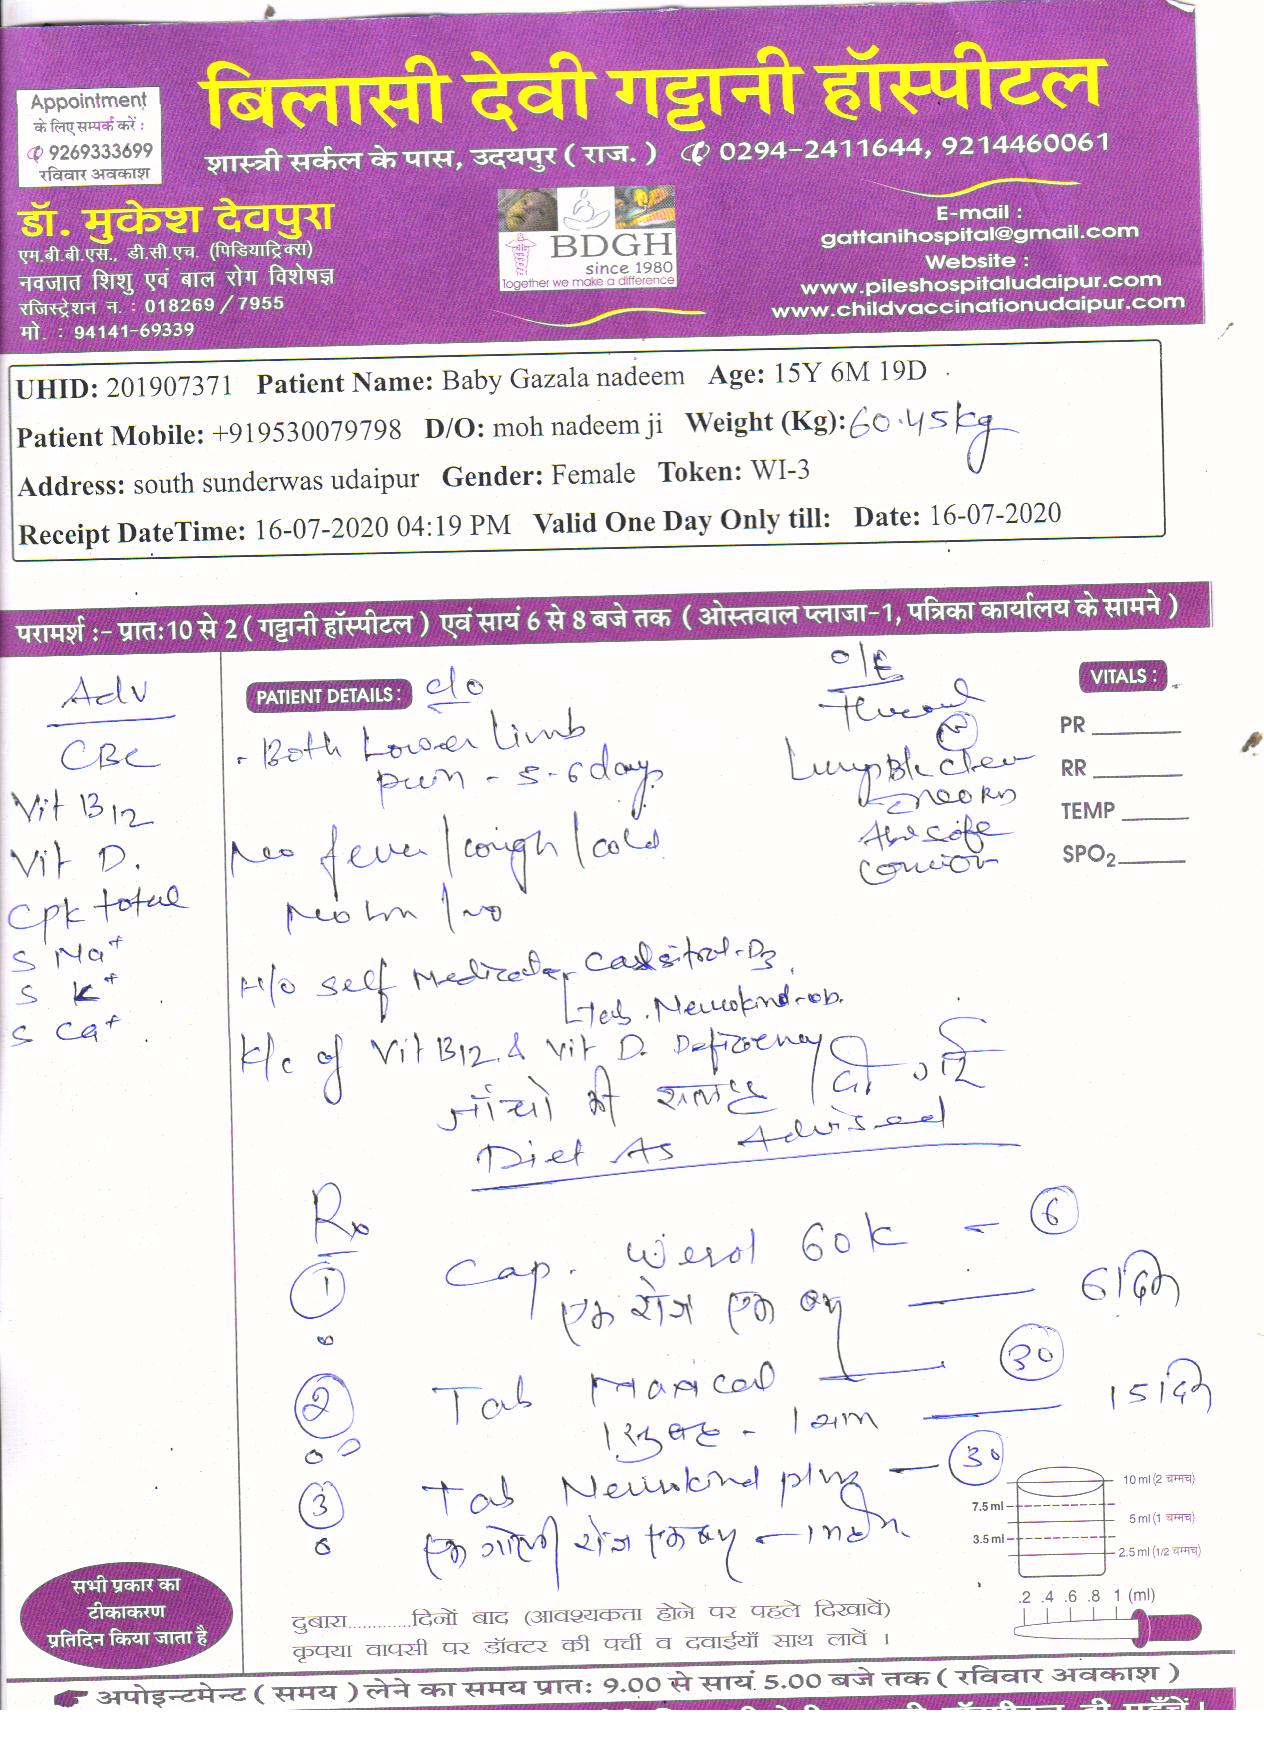 Appointment
के लिए सम्पर्क करें :
✆ 9269333699
रविवार अवकाश
बिलासी देवी गट्टानी हॉस्पीटल
शास्त्री सर्कल के पास, उदयपुर ( राज. ) ✆ 0294-2411644, 9214460061
डॉ. मुकेश देवपुरा
एम.बी.बी.एस., डी.सी.एच. (पिडियाट्रिक्स)
नवजात शिशु एवं बाल रोग विशेषज्ञ
रजिस्ट्रेशन न. : 018269 / 7955
मो. : 94141-69339
BDGH
since 1980
Together we make a difference
E-mail :
gattanihospital@gmail.com
Website :
www.pileshospitaludaipur.com
www.childvaccinationudaipur.com
UHID: 201907371 Patient Name: Baby Gazala nadeem Age: 15Y 6M 19D
Patient Mobile: +919530079798 D/O: moh nadeem ji Weight (Kg): 60.45kg
Address: south sunderwas udaipur Gender: Female Token: WI-3
Receipt DateTime: 16-07-2020 04:19 PM Valid One Day Only till: Date: 16-07-2020
परामर्श :- प्रात: 10 से 2 ( गट्टानी हॉस्पीटल ) एवं सायं 6 से 8 बजे तक ( ओस्तवाल प्लाजा-1, पत्रिका कार्यालय के सामने )
Adv
CBC
Vit B12
Vit D.
Cpk total
S Na+
S K+
S Ca+
PATIENT DETAILS : c/o
- Both Lower Limb
pain - 5-6 days
No fever / cough / cold
H/o self Medication
Tab. Neurokind-
K/c of Vit B12 & Vit D. Deficiency
जाँचो की सलाह दी गई
Diet As Advised
O/E
VITALS :
PR
RR
TEMP
SPO2
Rx
1 Cap. Wesol 60K - 6
एक रोज एक बार 6 दिन
2 Tab Maxical 30
1 सुबह - 1 शाम 15 दिन
3 Tab Neurokind plus - 30
एक गोली रोज एक बार
10 ml (2 चम्मच)
7.5 ml
5 ml (1 चम्मच)
3.5 ml
2.5 ml (1/2 चम्मच)
.2 .4 .6 .8 1 (ml)
सभी प्रकार का
टीकाकरण
प्रतिदिन किया जाता है
दुबारा............दिनों बाद (आवश्यकता होने पर पहले दिखावें)
कृपया वापसी पर डॉक्टर की पर्ची व दवाईयाँ साथ लावें ।
अपोइन्टमेन्ट ( समय ) लेने का समय प्रात: 9.00 से सायं 5.00 बजे तक ( रविवार अवकाश )